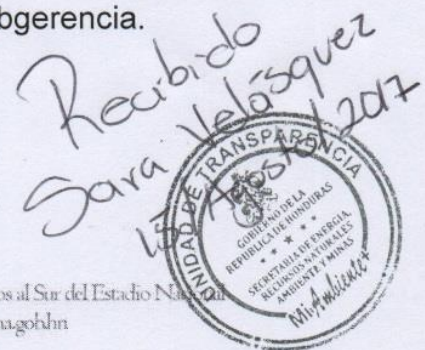 bgerencia.
Recibido
Sara Velásquez
15 Agosto/2017
UNIDAD DE TRANSPARENCIA
GOBIERNO DE LA
REPUBLICA DE HONDURAS
SECRETARIA DE ENERGIA,
RECURSOS NATURALES
AMBIENTE Y MINAS
Mi Ambiente+
os al Sur del Estadio Nacional
na.gob.hn